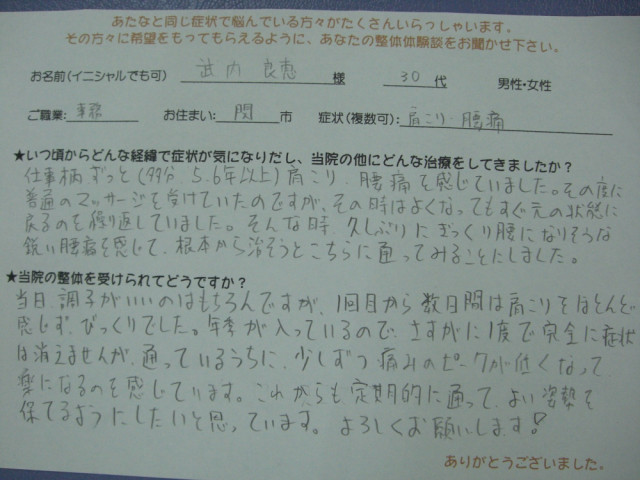 あなたと同じ症状で悩んでいる方々がたくさんいらっしゃいます。
その方々に希望をもってもらえるように、あなたの整体体験談をお聞かせ下さい。
お名前(イニシャルでも可) 武内 良恵 様 30 代 男性・女性
ご職業: 事務 お住まい: 関 市 症状(複数可): 肩こり・腰痛
★いつ頃からどんな経緯で症状が気になりだし、当院の他にどんな治療をしてきましたか?
仕事柄、ずっと(多分 5、6年以上)肩こり、腰痛を感じていました。その度に
普通のマッサージを受けていたのですが、その時はよくなってもすぐ元の状態に
戻るのを繰り返していました。そんな時、久しぶりにぎっくり腰になりそうな
鋭い腰痛を感じて、根本から治そうとこちらに通ってみることにしました。
★当院の整体を受けられてどうですか?
当日、調子がいいのはもちろんですが、1回目から数日間は肩こりをほとんど
感じず、びっくりでした。年季が入っているので、さすがに1度で完全に症状
は消えませんが、通っているうちに、少しずつ痛みのピークが低くなって
楽になるのを感じています。これからも定期的に通って、よい姿勢を
保てるようにしたいと思っています。よろしくお願いします!
ありがとうございました。